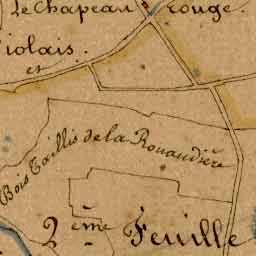 Le Chapeau rouge.
Violais.
et
Bois Taillis de la Rouaudière
2ème Feuille